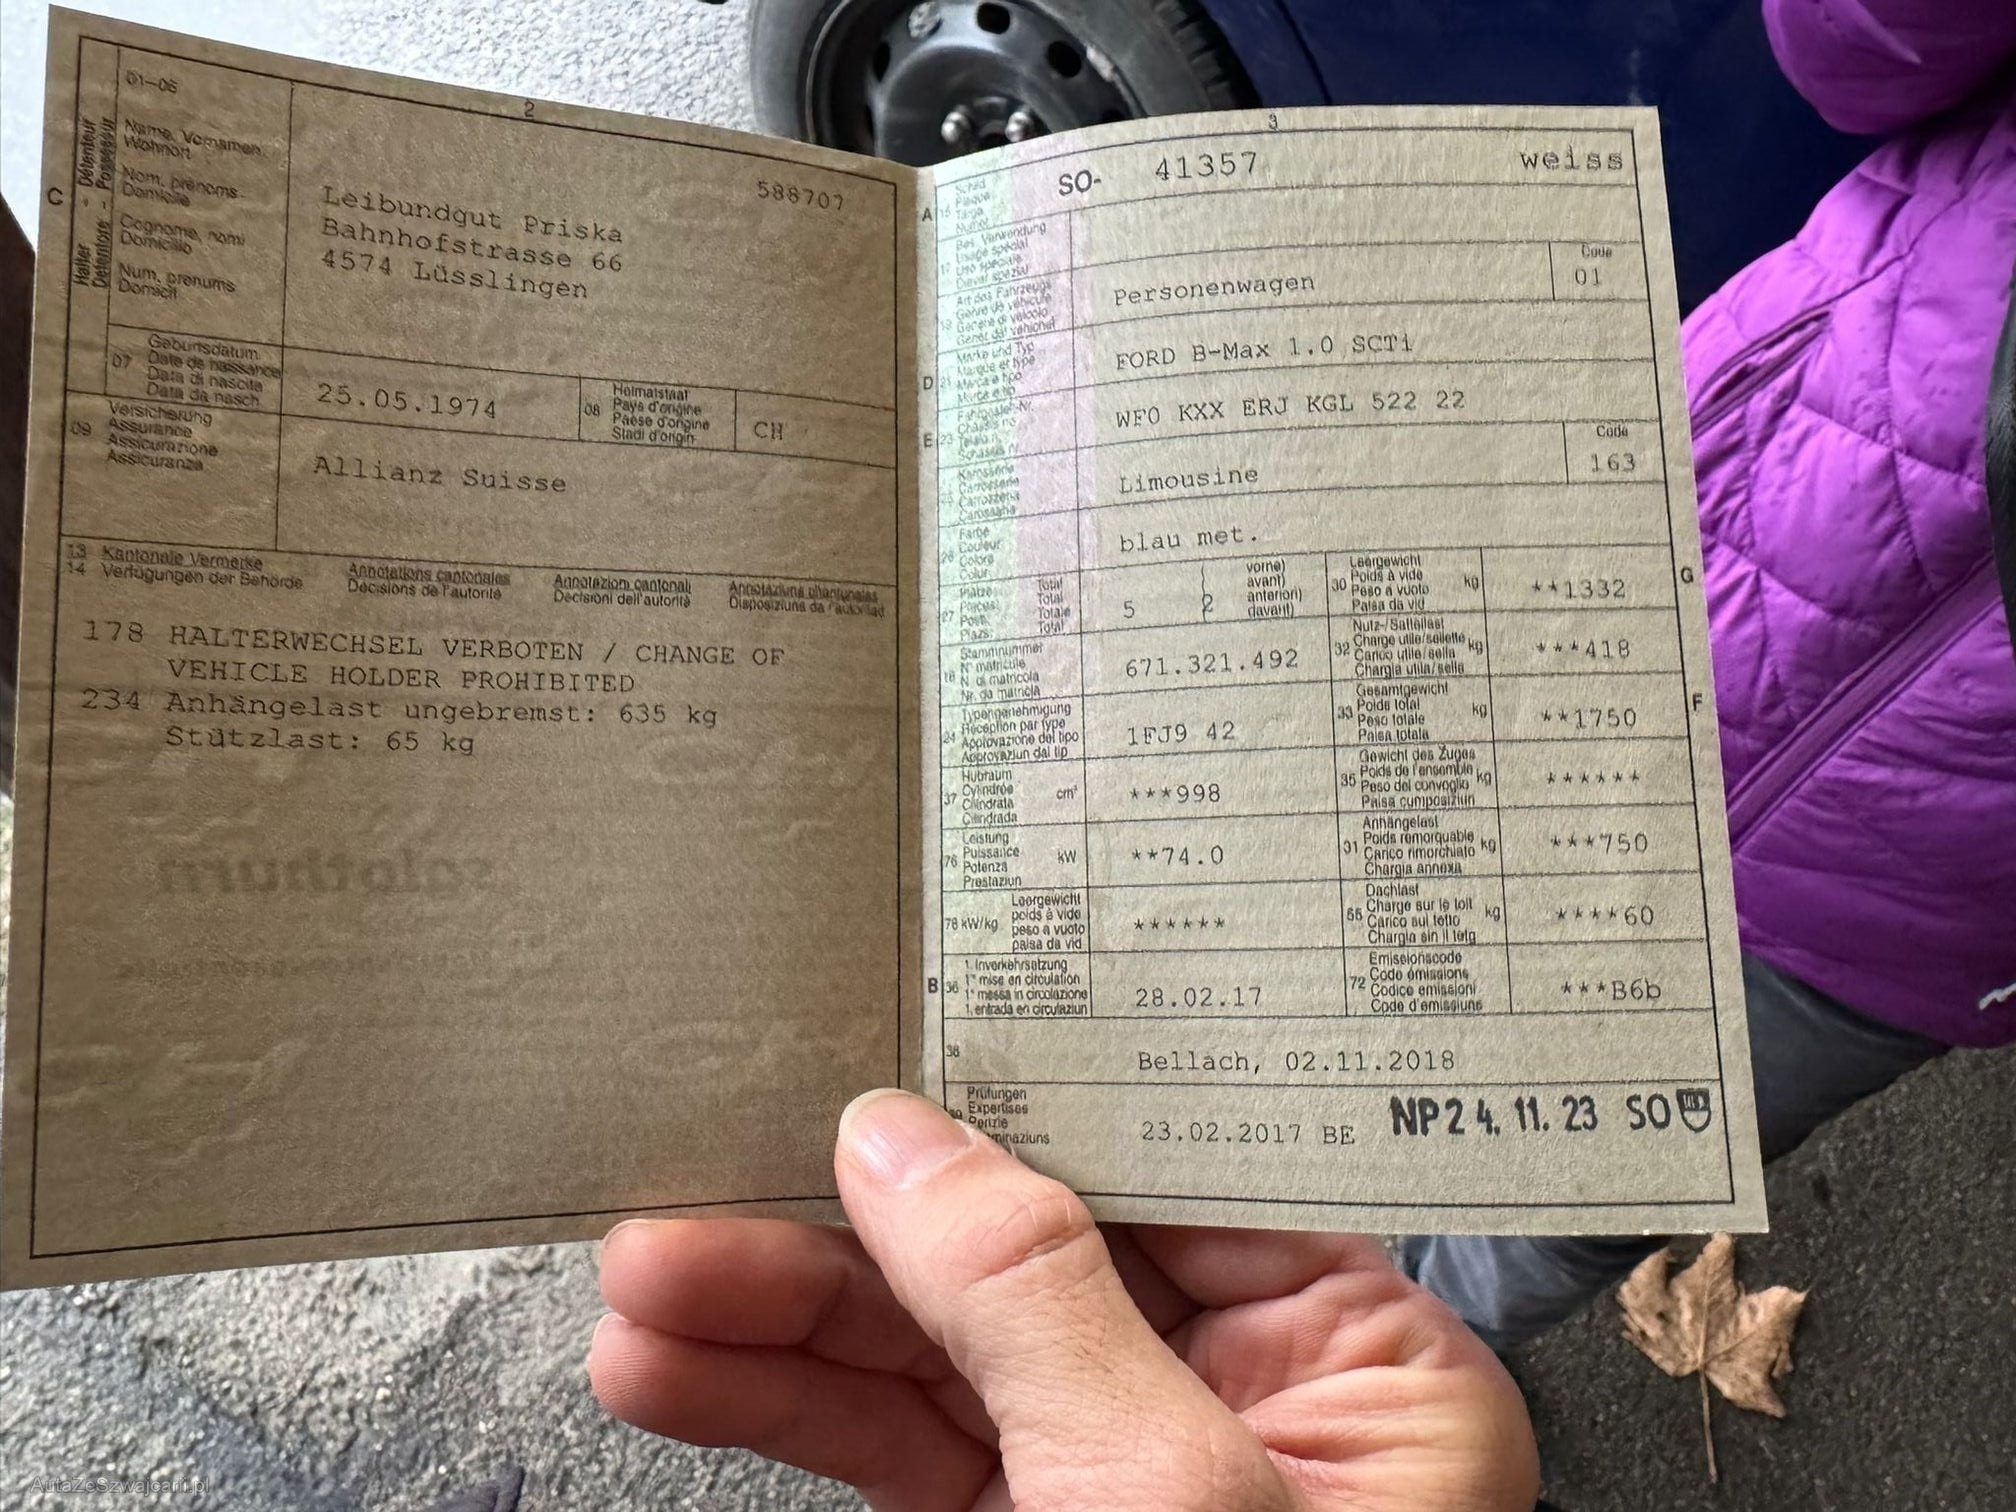 2
C
Halter - Détenteur
Detentore - Possessur
01-06
Name, Vornamen
Wohnort
Nom, prénoms
Domicile
Cognome, nomi
Domicilio
Num, prenums
Domicil
588707
Leibundgut Priska
Bahnhofstrasse 66
4574 Lüsslingen
07
Geburtsdatum
Date de naissance
Data di nascita
Data da nasch.
25.05.1974
08
Heimatstaat
Pays d'origine
Paese d'origine
Stadi d'origin
CH
09
Versicherung
Assurance
Assicurazione
Assicuranza
Allianz Suisse
13 Kantonale Vermerke Annotations cantonales Annotazioni cantonali Annotaziuns chantunalas
14 Verfügungen der Behörde Décisions de l'autorité Decisioni dell'autorità Disposiziuns da l'autoritad
178 HALTERWECHSEL VERBOTEN / CHANGE OF
VEHICLE HOLDER PROHIBITED
234 Anhängelast ungebremst: 635 kg
Stützlast: 65 kg
3
A 15
Schild
Plaque
Targa
Numer
SO- 41357 weiss
17
Bes. Verwendung
Usage spécial
Uso speciale
Diever spezial
19
Art des Fahrzeugs
Genre de véhicule
Genere di veicolo
Gener dal vehichel
Personenwagen
Code
01
D 21
Marke und Typ
Marque et type
Marca e tipo
Marca e tip
FORD B-Max 1.0 SCTi
E 23
Fahrgestell-Nr.
Châssis no
Telaio n.
Schassis nr.
WF0 KXX ERJ KGL 522 22
25
Karosserie
Carrosserie
Carrozzeria
Carossaria
Limousine
Code
163
26
Farbe
Couleur
Colore
Colur
blau met.
27
Plätze: Total
Places: Total
Posti: Totale
Plazs: Total
5 2
vorne)
avant)
anteriori)
davant)
G
30
Leergewicht
Poids à vide
Peso a vuoto
Paisa da vid
kg
**1332
18
Stammnummer
N° matricule
N. di matricola
Nr. da matricla
671.321.492
32
Nutz-/Sattellast
Charge utile/sellette
Carico utile/sella
Chargia utila/sella
kg
***418
24
Typengenehmigung
Réception par type
Approvazione del tipo
Approvaziun dal tip
1FJ9 42
F
33
Gesamtgewicht
Poids total
Peso totale
Paisa totala
kg
**1750
37
Hubraum
Cylindrée
Cilindrata
Cilindrada
cm³
***998
35
Gewicht des Zuges
Poids de l'ensemble
Peso del convoglio
Paisa cumposiziun
kg
******
76
Leistung
Puissance
Potenza
Prestaziun
kW
**74.0
31
Anhängelast
Poids remorquable
Carico rimorchiato
Chargia annexa
kg
***750
78 kW/kg
Leergewicht
poids à vide
peso a vuoto
paisa da vid
******
55
Dachlast
Charge sur le toit
Carico sul tetto
Chargia sin il tetg
kg
****60
B 36
1. Inverkehrsetzung
1re mise en circulation
1a messa in circolazione
1. entrada en circulaziun
28.02.17
72
Emissionscode
Code émissions
Codice emissioni
Code d'emissiuns
***B6b
38
Bellach, 02.11.2018
Prüfungen
Expertises
23.02.2017 BE
NP 24. 11. 23 SO
AutaZeSzwajcarii.pl